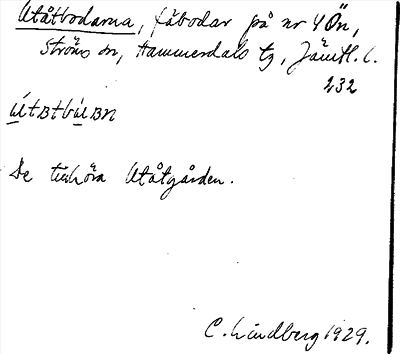 Utåtbodarna, fäbodar på nr 4 Ön,
Ströms sn, Hammerdals tg, Jämtl. l.
232
útʙtbùʙn
De tillhöra Utåtgården.
C. Lindberg 1929.